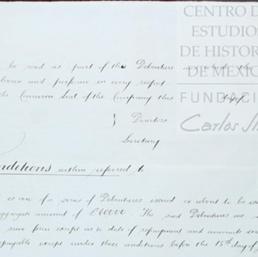 CENTRO D
ESTUDIOS
DE HISTOR
DE MÉXIC
FUNDACI
Carlos Sli
be read as part of the Debenture
and perform in every respect
the Common Seal of the Company this day
Directors
Secretary
Conditions within referred to
is one of a series of Debentures issued or about to be issued
aggregate amount of £60000. The said Debentures are
same form except as to date of repayment and amounts
repayable except under these conditions before the 15th day of